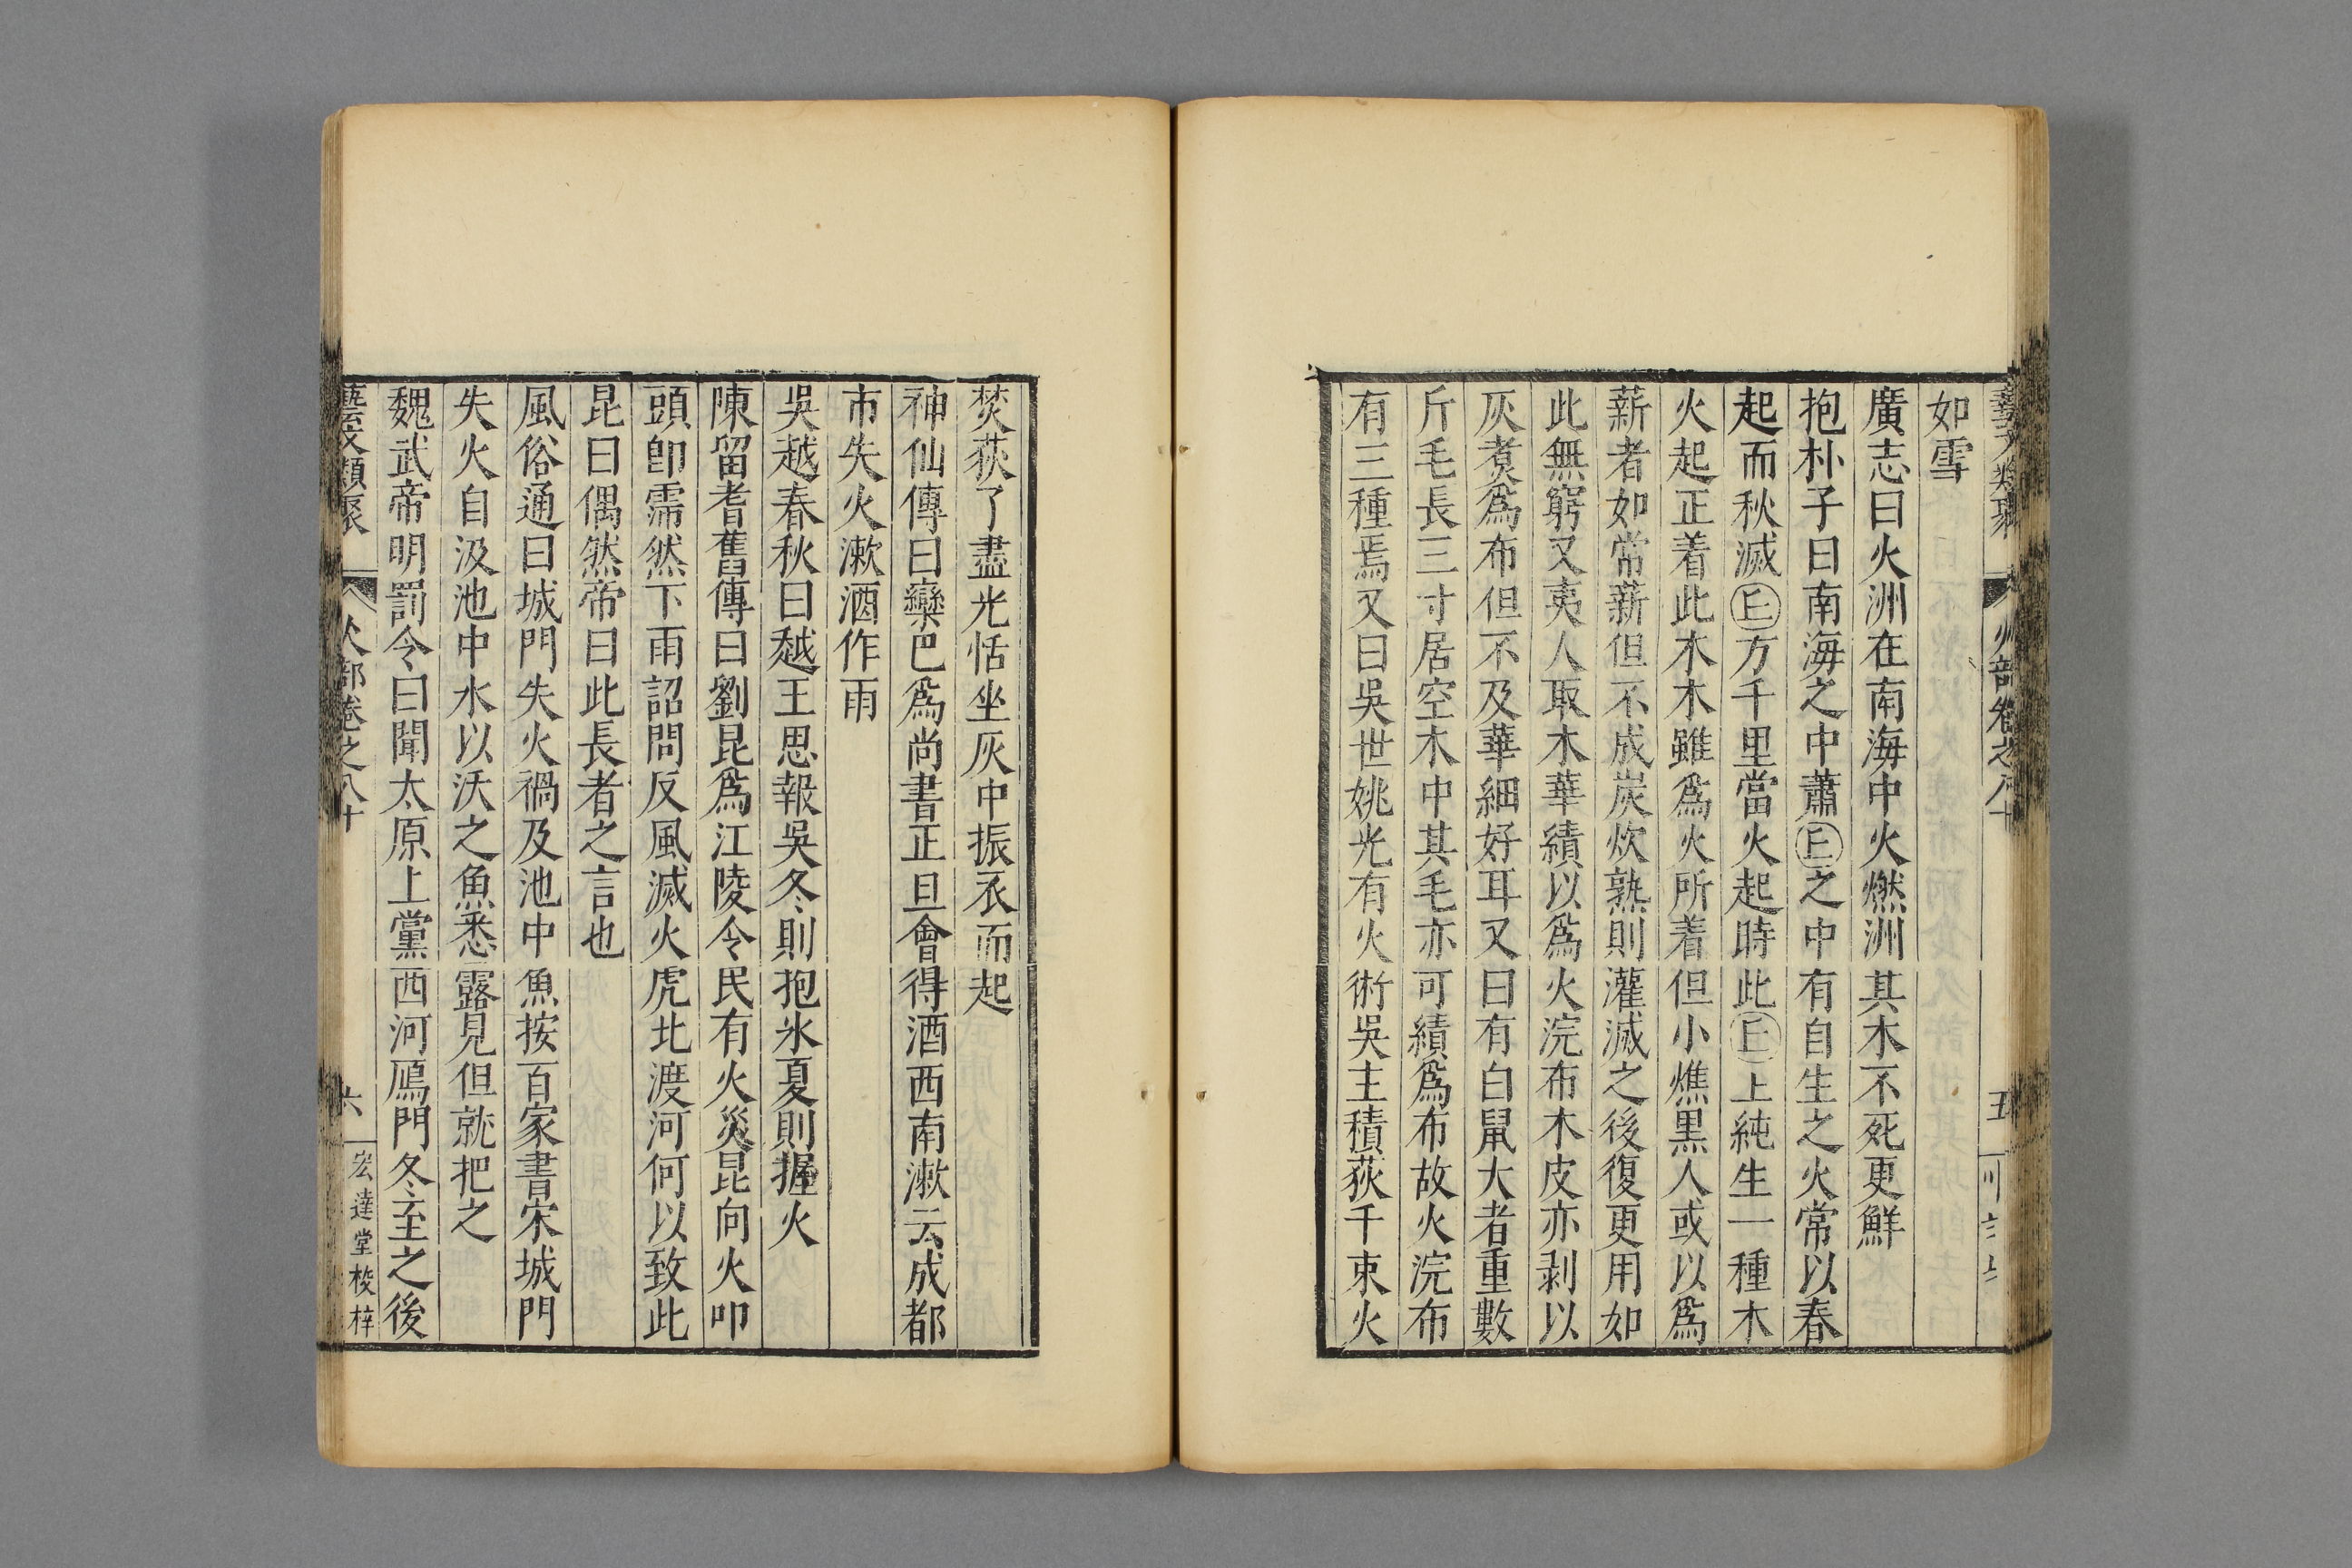 藝文類聚 火部卷之八十 五
如雪
廣志曰火洲在南海中火燃洲其木不死更鮮
抱朴子曰南海之中蕭㊣之中有自生之火常以春
起而秋滅丘方千里當火起時此丘上純生一種木
火起正着此木木雖爲火所着但小燋黑人或以爲
薪者如常薪但不成炭炊熟則灌滅之後復更用如
此無窮又夷人取木華績以爲火浣布木皮亦剥以
灰煑爲布但不及華細好耳又曰有白鼠大者重數
斤毛長三寸居空木中其毛亦可績爲布故火浣布
有三種焉又曰吳世姚光有火術吳主積荻千束火
焚荻了盡光恬坐灰中振衣而起
神仙傳曰欒巴爲尚書正旦會得酒西南漱云成都
市失火漱酒作雨
吳越春秋曰越王思報吳冬則抱氷夏則握火
陳留耆舊傳曰劉昆爲江陵令民有火災昆向火叩
頭卽霈然下雨詔問反風滅火虎北渡河何以致此
昆曰偶然帝曰此長者之言也
風俗通曰城門失火禍及池中魚按百家書宋城門
失火自汲池中水以沃之魚悉露見但就把之
魏武帝明罰令曰聞太原上黨西河鴈門冬至之後
藝文類聚 火部卷之八十 六 宏達堂校梓